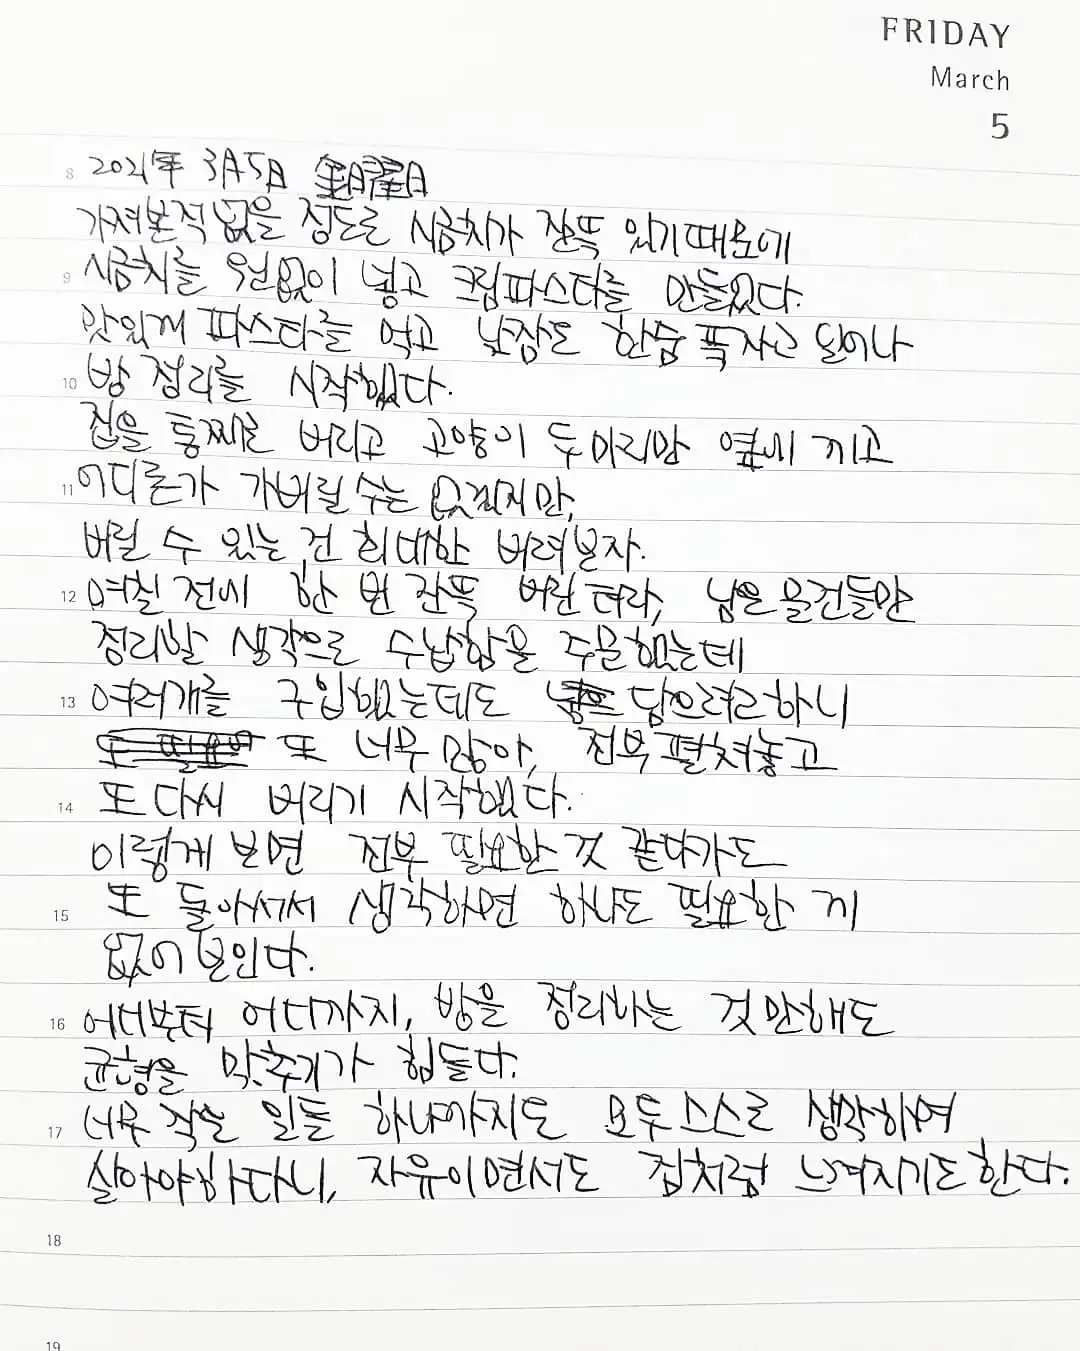 FRIDAY
March
5
8 2021年 3月5日 金曜日
가져본적 없을 정도로 시금치가 잔뜩 있기때문에
9 시금치를 원없이 넣고 크림파스타를 만들었다.
맛있게 파스타를 먹고 낮잠도 한숨 푹자고 일어나
10 방 정리를 시작했다.
집을 통째로 버리고 고양이 두마리만 옆에 끼고
11 어디론가 가버릴 수는 없겠지만,
버릴 수 있는 건 최대한 버려보자.
12 며칠 전에 한 번 잔뜩 버린 터라, 남은 물건들만
정리할 생각으로 수납함을 주문했는데
13 여러개를 구입했는데도 담으려고하니
또 너무 많아, 전부 펼쳐놓고
14 또 다시 버리기 시작했다.
이렇게 보면 전부 필요한 것 같다가도
15 또 돌아서서 생각하면 하나도 필요한 게
없어 보인다.
16 어디부터 어디까지, 방을 정리하는 것만해도
균형을 맞추기가 힘들다.
17 너무 작은 일들 하나까지도 모두 스스로 생각하며
살아야한다니, 자유이면서도 짐처럼 느껴지기도한다.
18
19